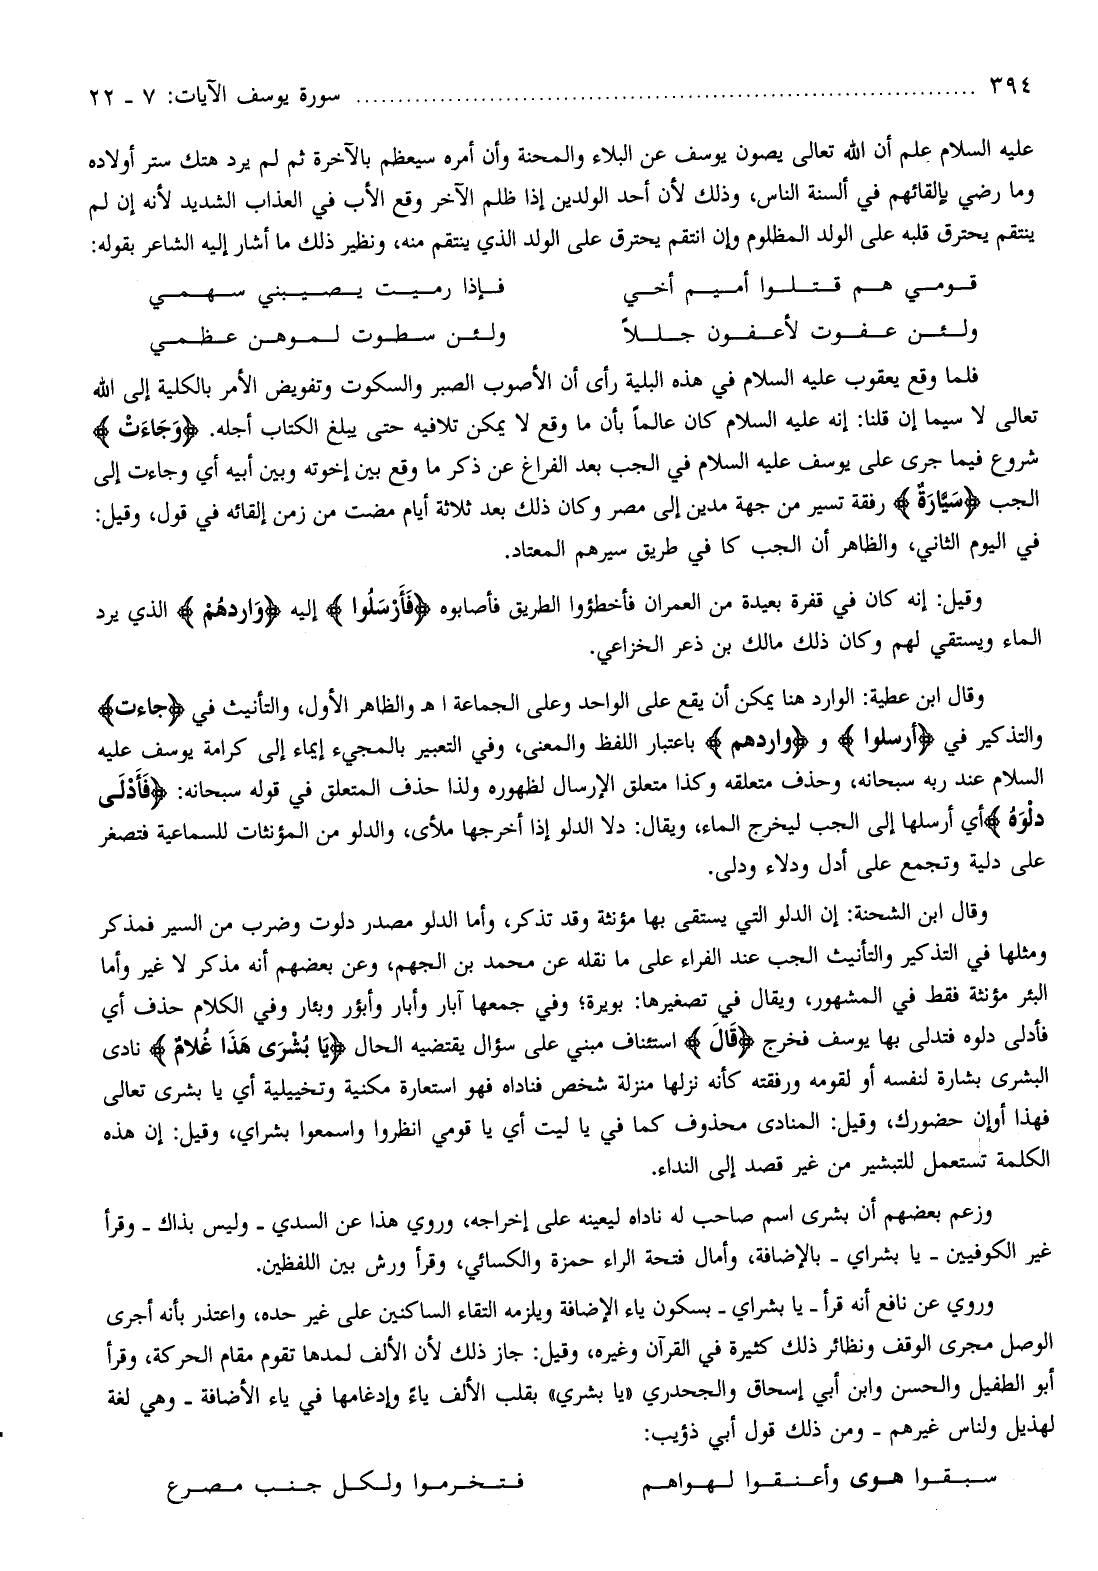 ٣٩٤ ........................................................................ سورة يوسف الآيات: ٧ - ٢٢
عليه السلام علم أن الله تعالى يصون يوسف عن البلاء والمحنة وأن أمره سيعظم بالآخرة ثم لم يرد هتك ستر أولاده
وما رضي بإلقائهم في ألسنة الناس، وذلك لأن أحد الولدين إذا ظلم الآخر وقع الأب في العذاب الشديد لأنه إن لم
ينتقم يحترق قلبه على الولد المظلوم وإن انتقم يحترق على الولد الذي ينتقم منه، ونظير ذلك ما أشار إليه الشاعر بقوله:
قومي هم قتلوا أميم أخي فإذا رميت يصيبني سهمي
ولئن عفوت لأعفون جللاً ولئن سطوت لموهن عظمي
فلما وقع يعقوب عليه السلام في هذه البلية رأى أن الأصوب الصبر والسكوت وتفويض الأمر بالكلية إلى الله
تعالى لا سيما إن قلنا: إنه عليه السلام كان عالماً بأن ما وقع لا يمكن تلافيه حتى يبلغ الكتاب أجله. ﴿وَجَاءَتْ﴾
شروع فيما جرى على يوسف عليه السلام في الجب بعد الفراغ عن ذكر ما وقع بين إخوته وبين أبيه أي وجاءت إلى
الجب ﴿سَيَّارَةٌ﴾ رفقة تسير من جهة مدين إلى مصر وكان ذلك بعد ثلاثة أيام مضت من زمن إلقائه في قول، وقيل:
في اليوم الثاني، والظاهر أن الجب كا في طريق سيرهم المعتاد.
وقيل: إنه كان في قفرة بعيدة من العمران فأخطؤوا الطريق فأصابوه ﴿فَأَرْسَلُوا﴾ إليه ﴿وَاردهُمْ﴾ الذي يرد
الماء ويستقي لهم وكان ذلك مالك بن ذعر الخزاعي.
وقال ابن عطية: الوارد هنا يمكن أن يقع على الواحد وعلى الجماعة ا هـ والظاهر الأول، والتأنيث في ﴿جاءت﴾
والتذكير في ﴿أرسلوا﴾ و ﴿واردهم﴾ باعتبار اللفظ والمعنى، وفي التعبير بالمجيء إيماء إلى كرامة يوسف عليه
السلام عند ربه سبحانه، وحذف متعلقه وكذا متعلق الإرسال لظهوره ولذا حذف المتعلق في قوله سبحانه: ﴿فَأَدْلَى
دلْوَهُ﴾أي أرسلها إلى الجب ليخرج الماء، ويقال: دلا الدلو إذا أخرجها ملأى، والدلو من المؤنثات للسماعية فتصغر
على دلية وتجمع على أدل ودلاء ودلى.
وقال ابن الشحنة: إن الدلو التي يستقى بها مؤنثة وقد تذكر، وأما الدلو مصدر دلوت وضرب من السير فمذكر
ومثلها في التذكير والتأنيث الجب عند الفراء على ما نقله عن محمد بن الجهم، وعن بعضهم أنه مذكر لا غير وأما
البئر مؤنثة فقط في المشهور، ويقال في تصغيرها: بويرة؛ وفي جمعها آبار وأبار وأبؤر وبئار وفي الكلام حذف أي
فأدلى دلوه فتدلى بها يوسف فخرج ﴿قَالَ﴾ استئناف مبني على سؤال يقتضيه الحال ﴿يَا بُشْرَى هَذَا غُلامٌ﴾ نادى
البشرى بشارة لنفسه أو لقومه ورفقته كأنه نزلها منزلة شخص فناداه فهو استعارة مكنية وتخييلية أي يا بشرى تعالى
فهذا أوإن حضورك، وقيل: المنادى محذوف كما في يا ليت أي يا قومي انظروا واسمعوا بشراي، وقيل: إن هذه
الكلمة تستعمل للتبشير من غير قصد إلى النداء.
وزعم بعضهم أن بشرى اسم صاحب له ناداه ليعينه على إخراجه، وروي هذا عن السدي - وليس بذاك - وقرأ
غير الكوفيين - يا بشراي - بالإضافة، وأمال فتحة الراء حمزة والكسائي، وقرأ ورش بين اللفظين.
وروي عن نافع أنه قرأ - يا بشراي - بسكون ياء الإضافة ويلزمه التقاء الساكنين على غير حده، واعتذر بأنه أجرى
الوصل مجرى الوقف ونظائر ذلك كثيرة في القرآن وغيره، وقيل: جاز ذلك لأن الألف لمدها تقوم مقام الحركة، وقرأ
أبو الطفيل والحسن وابن أبي إسحاق والجحدري «يا بشري» بقلب الألف ياءً وإدغامها في ياء الأضافة - وهي لغة
لهذيل ولناس غيرهم - ومن ذلك قول أبي ذؤيب:
سبقوا هوى وأعنقوا لهواهم فتخرموا ولكل جنب مصرع